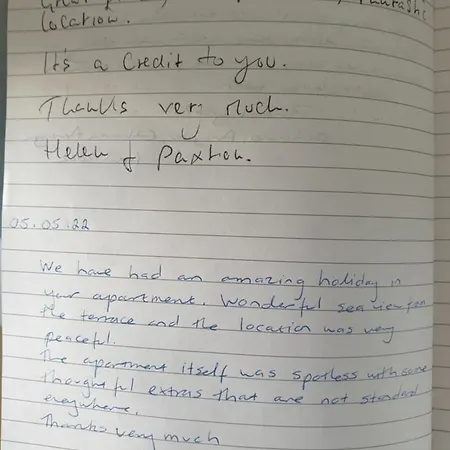 location.
It's a Credit to you.
Thanks very much.
Helen & Paxton.
05.05.22
We have had an amazing holiday in
your apartment. Wonderful sea view from
the terrace and the location was very
peaceful.
The apartment itself was spotless with some
thoughtful extras that are not standard
everywhere.
Thanks very much